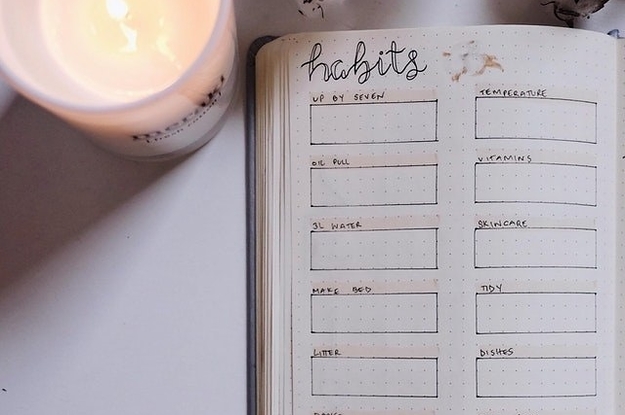 habits
UP BY SEVEN
TEMPERATURE
OIL PULL
VITAMINS
3L WATER
SKINCARE
MAKE BED
TIDY
LITTER
DISHES